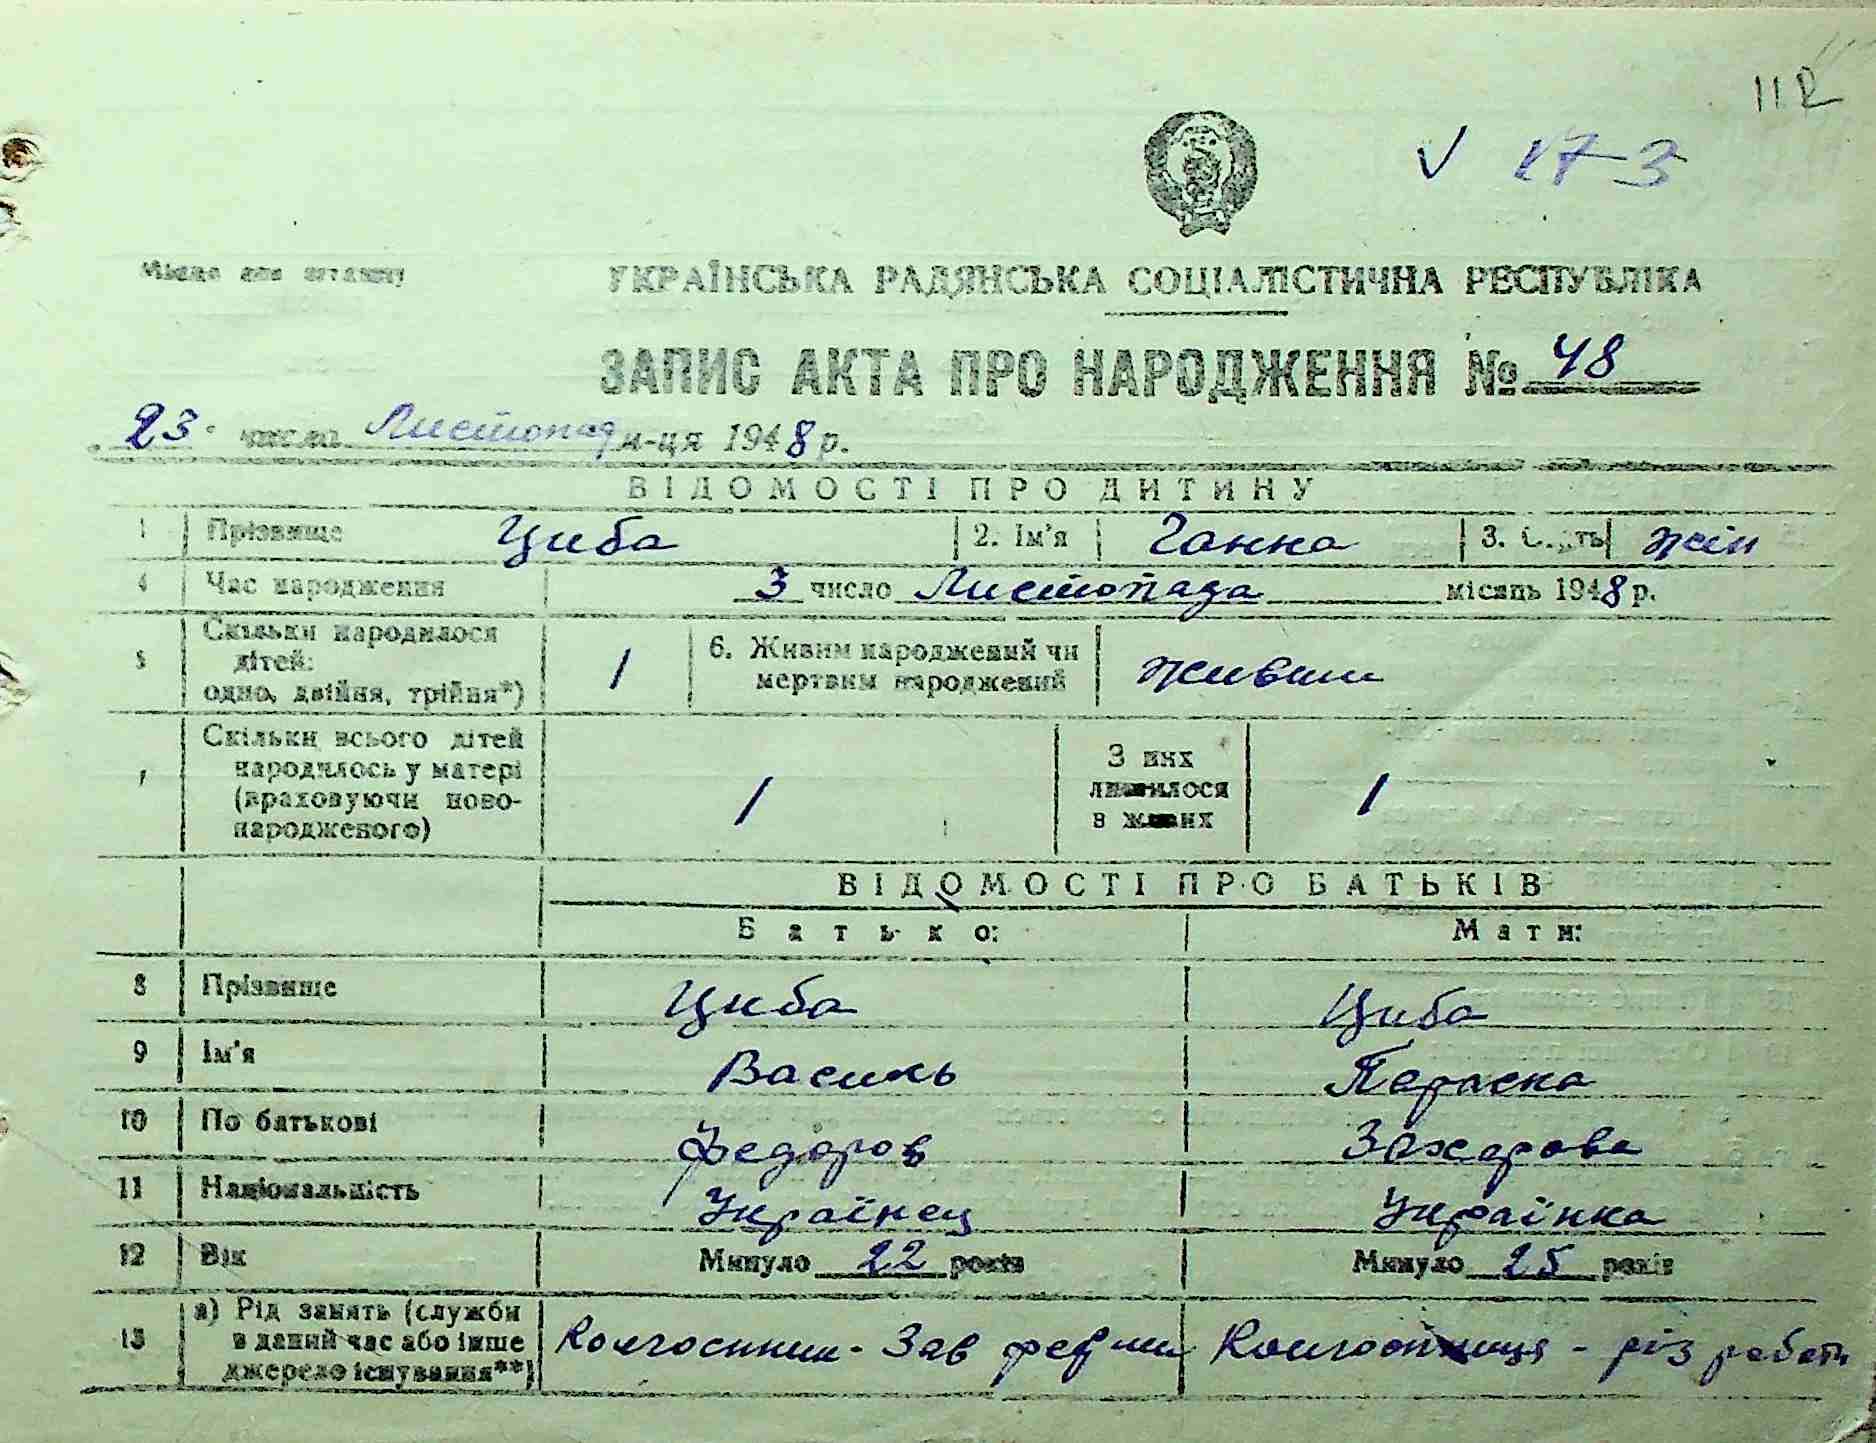 112
V 173
Місце для штампу
УКРАЇНСЬКА РАДЯНСЬКА СОЦІАЛІСТИЧНА РЕСПУБЛІКА
ЗАПИС АКТА ПРО НАРОДЖЕННЯ № 48
23 число Листопад м-ця 1948 р.
ВІДОМОСТІ ПРО ДИТИНУ
1 Прізвище Циба 2. Ім'я Ганна 3. Стать жін
4 Час народження 3 число Листопада місяць 1948 р.
5 Скільки народилося дітей: одно, двійня, трійня*) 1 6. Живим народжений чи мертвим народжений живим
7 Скільки всього дітей народилось у матері (враховуючи новонародженого) 1 З них лишилося в живих 1
ВІДОМОСТІ ПРО БАТЬКІВ
Батько: Мати:
8 Прізвище Циба Циба
9 Ім'я Василь Параска
10 По батькові Федоров Захарова
11 Національність Українец Українка
12 Вік Минуло 22 років Минуло 25 років
13 а) Рід занять (служби в даний час або інше джерело існування**) Колгоспник - Зав ферми Колгоспниця - різ работи